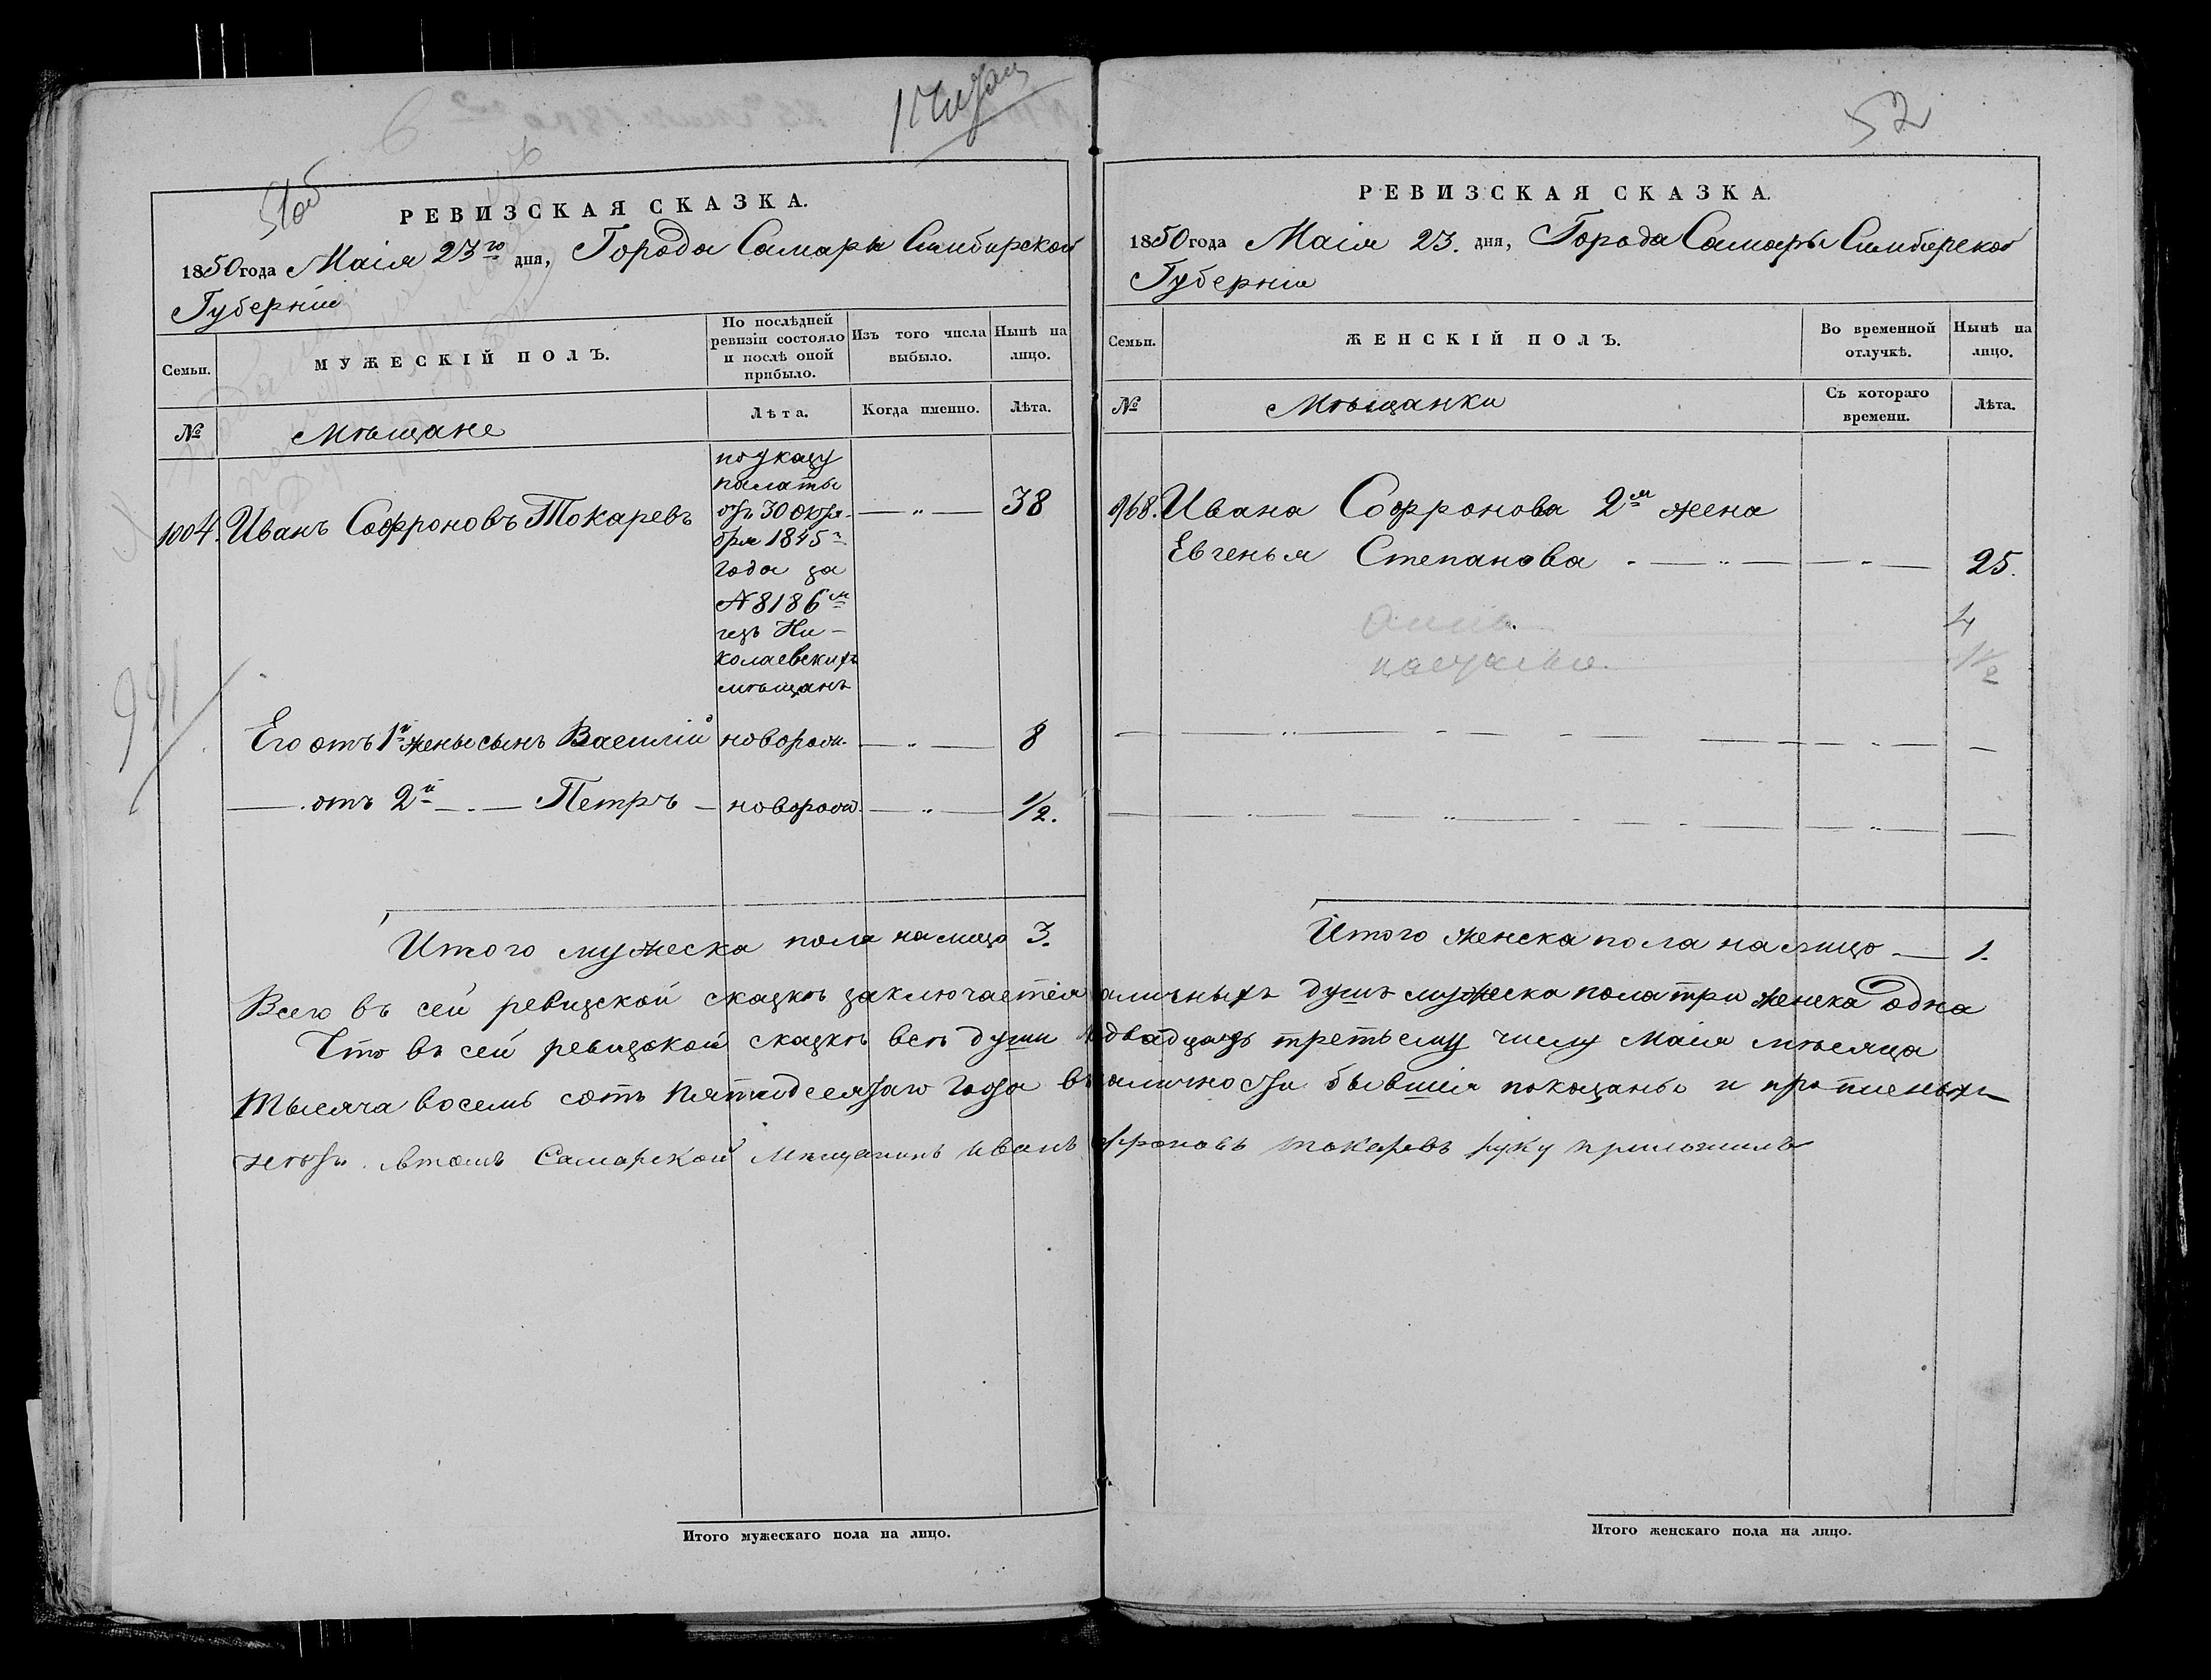 52
51об
РЕВИЗСКАЯ СКАЗКА.
1850 года Маія 23го дня, Города Самары Симбирской
Губерніи
Семьи.
МУЖЕСКІЙ ПОЛЪ.
По послѣдней
ревизіи состояло
и послѣ оной
прибыло.
Изъ того числа
выбыло.
Нынѣ на
лицо.
№
Мѣщане
Лѣта.
Когда именно.
Лѣта.
1004. Иванъ Софроновъ Токаревъ
по указу
палаты
отъ 30 октя-
бря 1845
года за
№ 8186м
изъ Ни-
колаевскихъ
мѣщанъ
— „ — 38
941
Его отъ 1й жены сынъ Василій новорожд. — „ — 8
— . отъ 2й — . — Петръ — новорожд. — „ — 1/2.
Итого мужеска пола налицо 3.
РЕВИЗСКАЯ СКАЗКА.
1850 года Маія 23. дня, Города Самары Симбирской
Губерніи
Семьи.
ЖЕНСКІЙ ПОЛЪ.
Во временной
отлучкѣ.
Нынѣ на
лицо.
№
Мѣщанки
Съ котораго
времени.
Лѣта.
968. Ивана Софронова 2я жена
Евгенья Степанова 25.
Анна 4
1/2
Итого женска пола налицо — 1.
Всего въ сей ревизской сказкѣ заключается наличныхъ душъ мужеска пола три женска одна
Что въ сей ревизской сказкѣ всѣ души къ двадцать третьему числу Маія мѣсяца
тысяча восемь сотъ пятидесятаго года въ наличности бывшія показаны и прописныхъ
нѣтъ. въ томъ Самарской мѣщанинъ иванъ софроновъ токаревъ руку приложилъ
Итого мужескаго пола на лицо.
Итого женскаго пола на лицо.